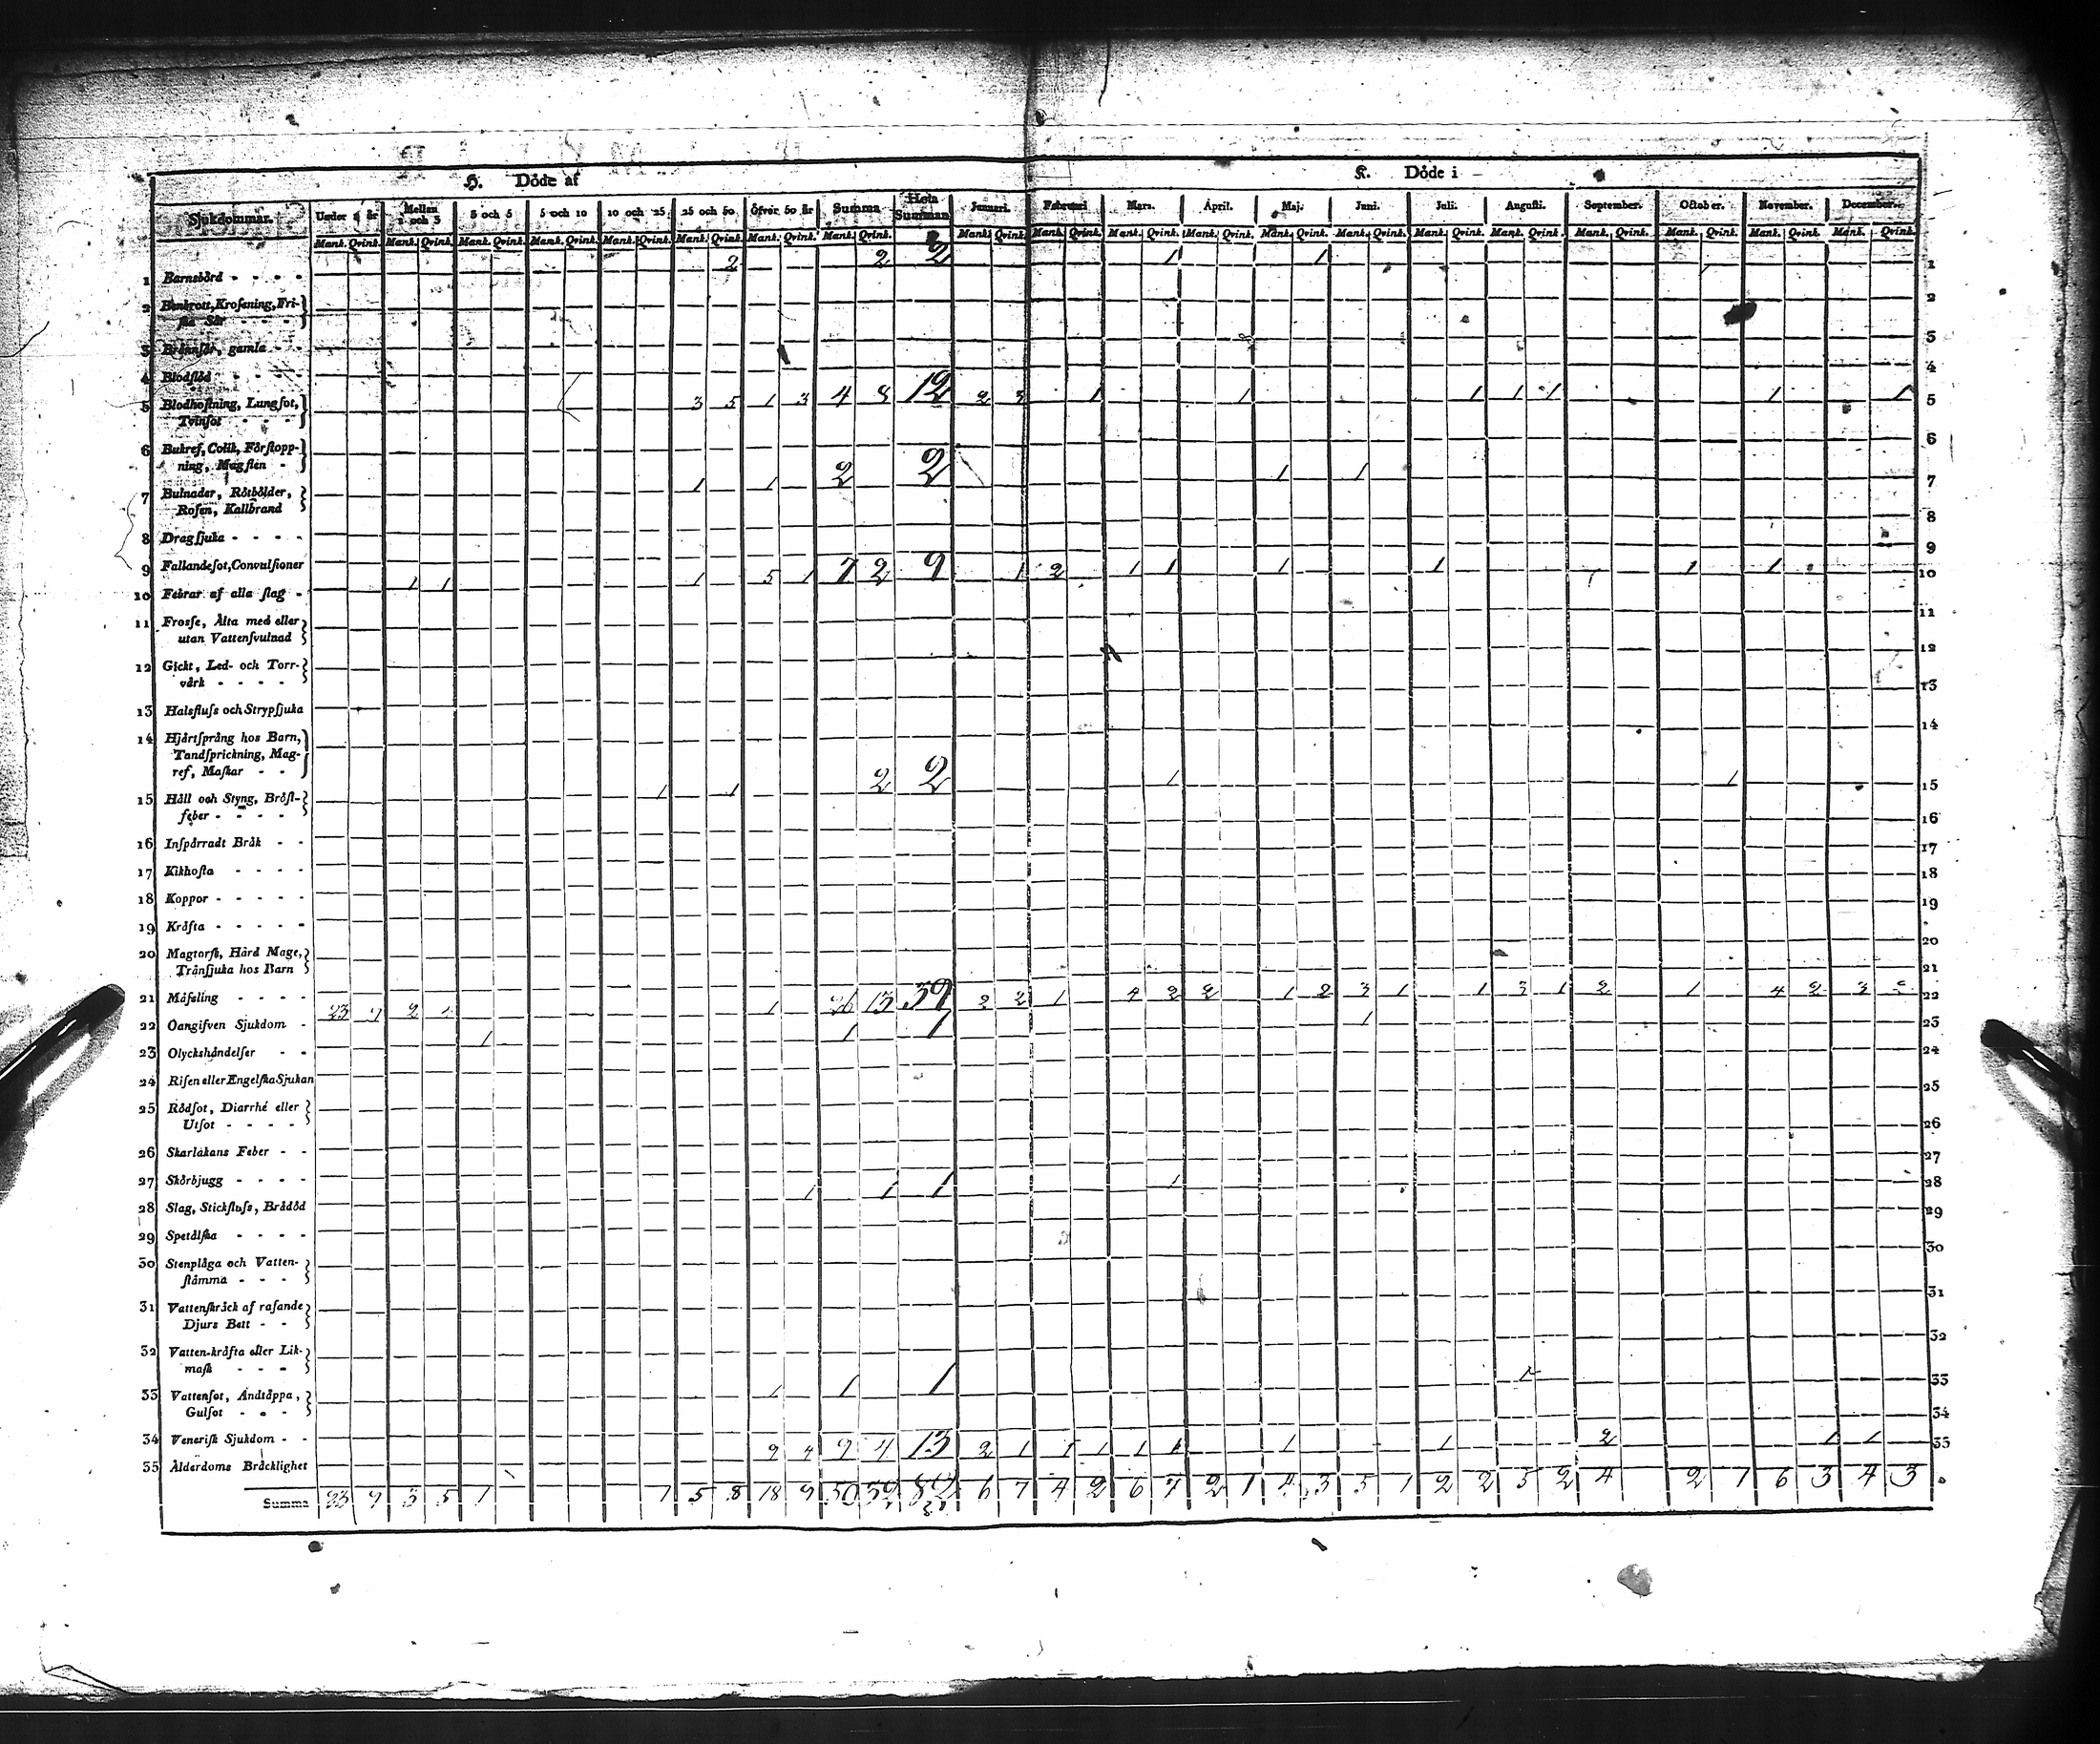 H. Döde af K. Döde i
Sjukdommar. Under 1 år Mellan 1 och 3 3 och 5 5 och 10 10 och 25 25 och 50 Öfver 50 år Summa Hela Summan Januari. Februari Mars. April. Maj. Juni. Juli. Augusti. September. October. November. December.
Mank. Qvink. Mank. Qvink. Mank. Qvink. Mank. Qvink. Mank. Qvink. Mank. Qvink. Mank. Qvink. Mank. Qvink. Mank. Qvink. Mank. Qvink. Mank. Qvink. Mank. Qvink. Mank. Qvink. Mank. Qvink. Mank. Qvink. Mank. Qvink. Mank. Qvink. Mank. Qvink. Mank. Qvink. Mank. Qvink.
1 Barnsbörd - - - - 2 2 2 1 1 1
2 Benbrott, Krosſning, Fri-
ſka Sår - - - - 2
3 Brännſår, gamla - - 3
4 Blodflöd - - - - 4
5 Blodhoſtning, Lungſot, 3 5 1 3 4 8 12 2 3 1 1 1 1 1 1 1 5
Tvinſot - - - -
6 Bukref, Colik, Förſtopp- 6
ning, Magſten -
7 Bulnader, Rötbölder, 1 1 2 2 1 1 7
Roſen, Kallbrand
8 Dragſjuka - - - - 8
9 Fallandeſot, Convulſioner 9
10 Febrar af alla ſlag - 1 1 1 5 1 7 2 9 1 2 1 1 1 1 1 1 10
11 Froſſe, Älta med eller 11
utan Vattenſvulnad
12 Gickt, Led- och Torr- 12
värk - - - -
13 Halsfluſs och Strypſjuka 13
14 Hjärtſprång hos Barn, 14
Tandſprickning, Mag-
ref, Maſkar - -
15 Håll och Styng, Bröſt- 1 1 2 2 1 1 15
feber - - - -
16 Inſpärradt Bråk - - 16
17 Kikhoſta - - - - 17
18 Koppor - - - - - 18
19 Kräfta - - - - - 19
20 Magtorſk, Hård Mage, 20
Tranſjuka hos Barn
21 Mäſsling - - - - 21
22 Oangifven Sjukdom - 23 9 2 4 1 26 13 39 2 2 1 4 2 2 1 2 3 1 1 3 1 2 1 4 2 3 2 22
23 Olyckshändelſer - - 1 1 1 1 23
24 Riſen eller Engelſka Sjukan 24
25 Rödſot, Diarrhé eller 25
Utſot - - - - -
26 Skarlakans Feber - - 26
27 Skörbjugg - - - - 27
28 Slag, Stickfluſs, Brådöd 1 1 1 1 28
29 Spetälſka - - - - 29
30 Stenplåga och Vatten- 30
ſtämma - - -
31 Vattenſkräck af raſande 31
Djurs Bett - -
32 Vatten-kräfta eller Lik- 32
maſk - - -
33 Vattenſot, Andtäppa, 1 1 1 1 33
Gulſot - - -
34 Veneriſk Sjukdom - - 34
35 Ålderdoms Bräcklighet 9 4 9 4 13 2 1 1 1 1 1 1 1 2 1 1 35
Summa 23 9 3 5 1 1 5 8 18 9 50 6 7 4 2 6 7 2 1 4 3 5 1 2 2 5 2 4 2 1 6 3 4 3